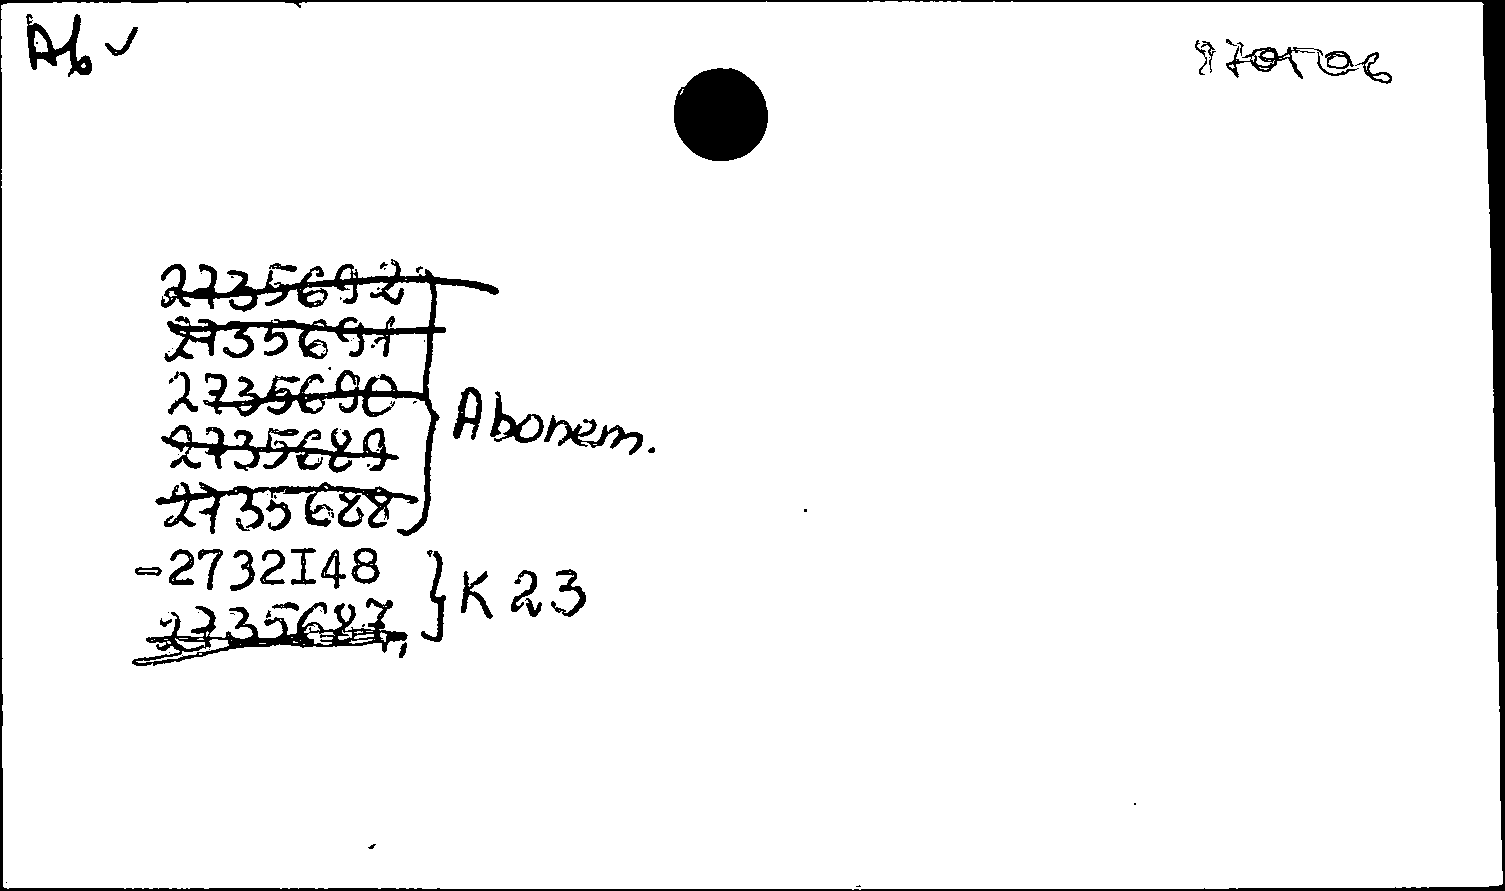 Аб ✓
970506
2735692
2735691
2735690
2735689
2735688
Abonem.
-2732I48
2735687
K 23